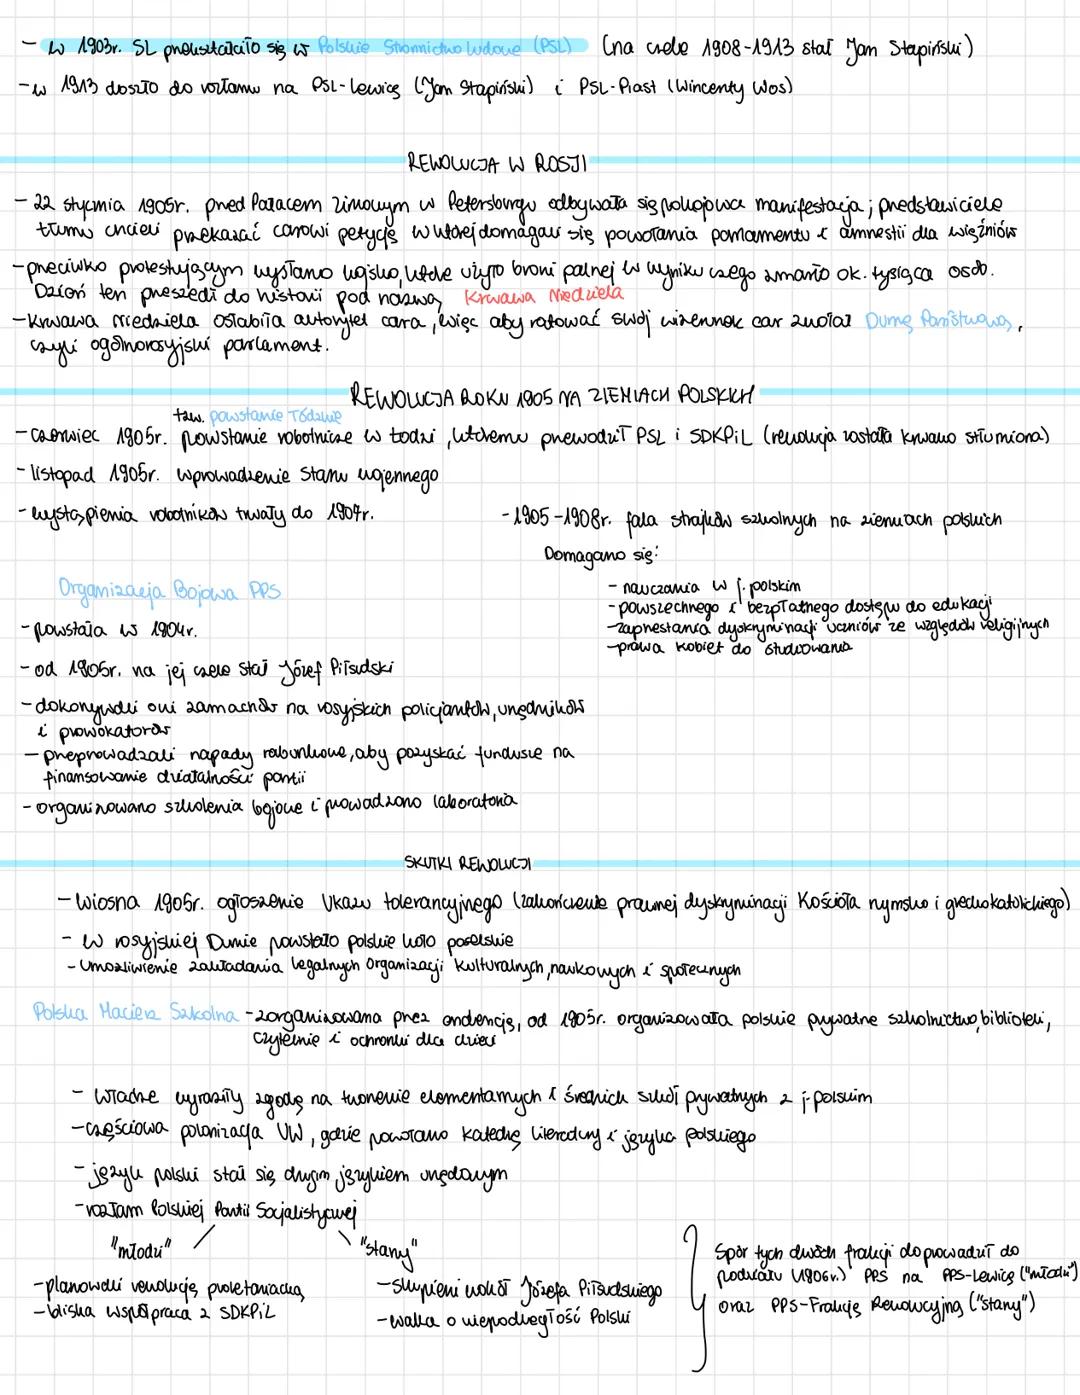 - w 1903r. SL przekształciło się w Polskie Stronnictwo Ludowe (PSL) (na czele 1908-1913 stał Jan Stapiński)
- w 1913 doszło do rozłamu na PSL-Lewicę (Jan Stapiński) i PSL-Piast (Wincenty Wos)
REWOLUCJA W ROSJI
- 22 stycznia 1905r. przed Pałacem Zimowym w Petersburgu odbywała się pokojowa manifestacja; przedstawiciele
tłumu chcieli przekazać carowi petycję w której domagali się powołania parlamentu i amnestii dla więźniów
- przeciwko protestującym wysłano wojsko, które użyło broni palnej w wyniku czego zmarło ok. tysiąca osób.
Dzień ten przeszedł do historii pod nazwą Krwawa Niedziela
- Krwawa niedziela osłabiła autorytet cara, więc aby ratować swój wizerunek car zwołał Dumę Państwową,
czyli ogólnorosyjski parlament.
REWOLUCJA ROKU 1905 NA ZIEMIACH POLSKICH
tzw. powstanie łódzkie
- czerwiec 1905r. powstanie robotnicze w Łodzi, któremu przewodził PSL i SDKPiL (rewolucja została krwawo stłumiona)
- listopad 1905r. wprowadzenie stanu wojennego
- wystąpienia robotników trwały do 1907r.
- 1905-1908r. fala strajków szkolnych na ziemiach polskich
Domagano się:
- nauczania w j. polskim
- powszechnego i bezpłatnego dostępu do edukacji
- zaprzestania dyskryminacji uczniów ze względów religijnych
- prawa kobiet do studiowania
Organizacja Bojowa PPS
- powstała w 1904r.
- od 1905r. na jej czele stał Józef Piłsudski
- dokonywali oni zamachów na rosyjskich policjantów, urzędników
i prowokatorów
- przeprowadzali napady rabunkowe, aby pozyskać fundusze na
finansowanie działalności partii
- organizowano szkolenia bojowe i prowadzono laboratoria
SKUTKI REWOLUCJI
- Wiosna 1905r. ogłoszenie Ukazu tolerancyjnego (zakończenie prawnej dyskryminacji Kościoła rzymsko i greckokatolickiego)
- w rosyjskiej Dumie powstało polskie koło poselskie
- Umożliwienie zakładania legalnych organizacji kulturalnych, naukowych i społecznych
Polska Macierz Szkolna - zorganizowana przez endencję, od 1905r. organizowała polskie prywatne szkolnictwo, biblioteki,
czytelnie i ochronki dla dzieci
- Władze wyraziły zgodę na tworzenie elementarnych i średnich szkół prywatnych z j. polskim
- częściowa polonizacja UW, gdzie powołano katedrę literatury i języka polskiego
- język polski stał się drugim językiem urzędowym
- rozłam Polskiej Partii Socjalistycznej
"młodzi"
- planowali rewolucję proletariacką
- bliska współpraca z SDKPiL
"starzy"
- skupieni wokół Józefa Piłsudskiego
- walka o niepodległość Polski
Spór tych dwóch frakcji doprowadził do
podziału (1906r.) PPS na PPS-Lewicę ("młodzi")
oraz PPS-Frakcję Rewolucyjną ("starzy")